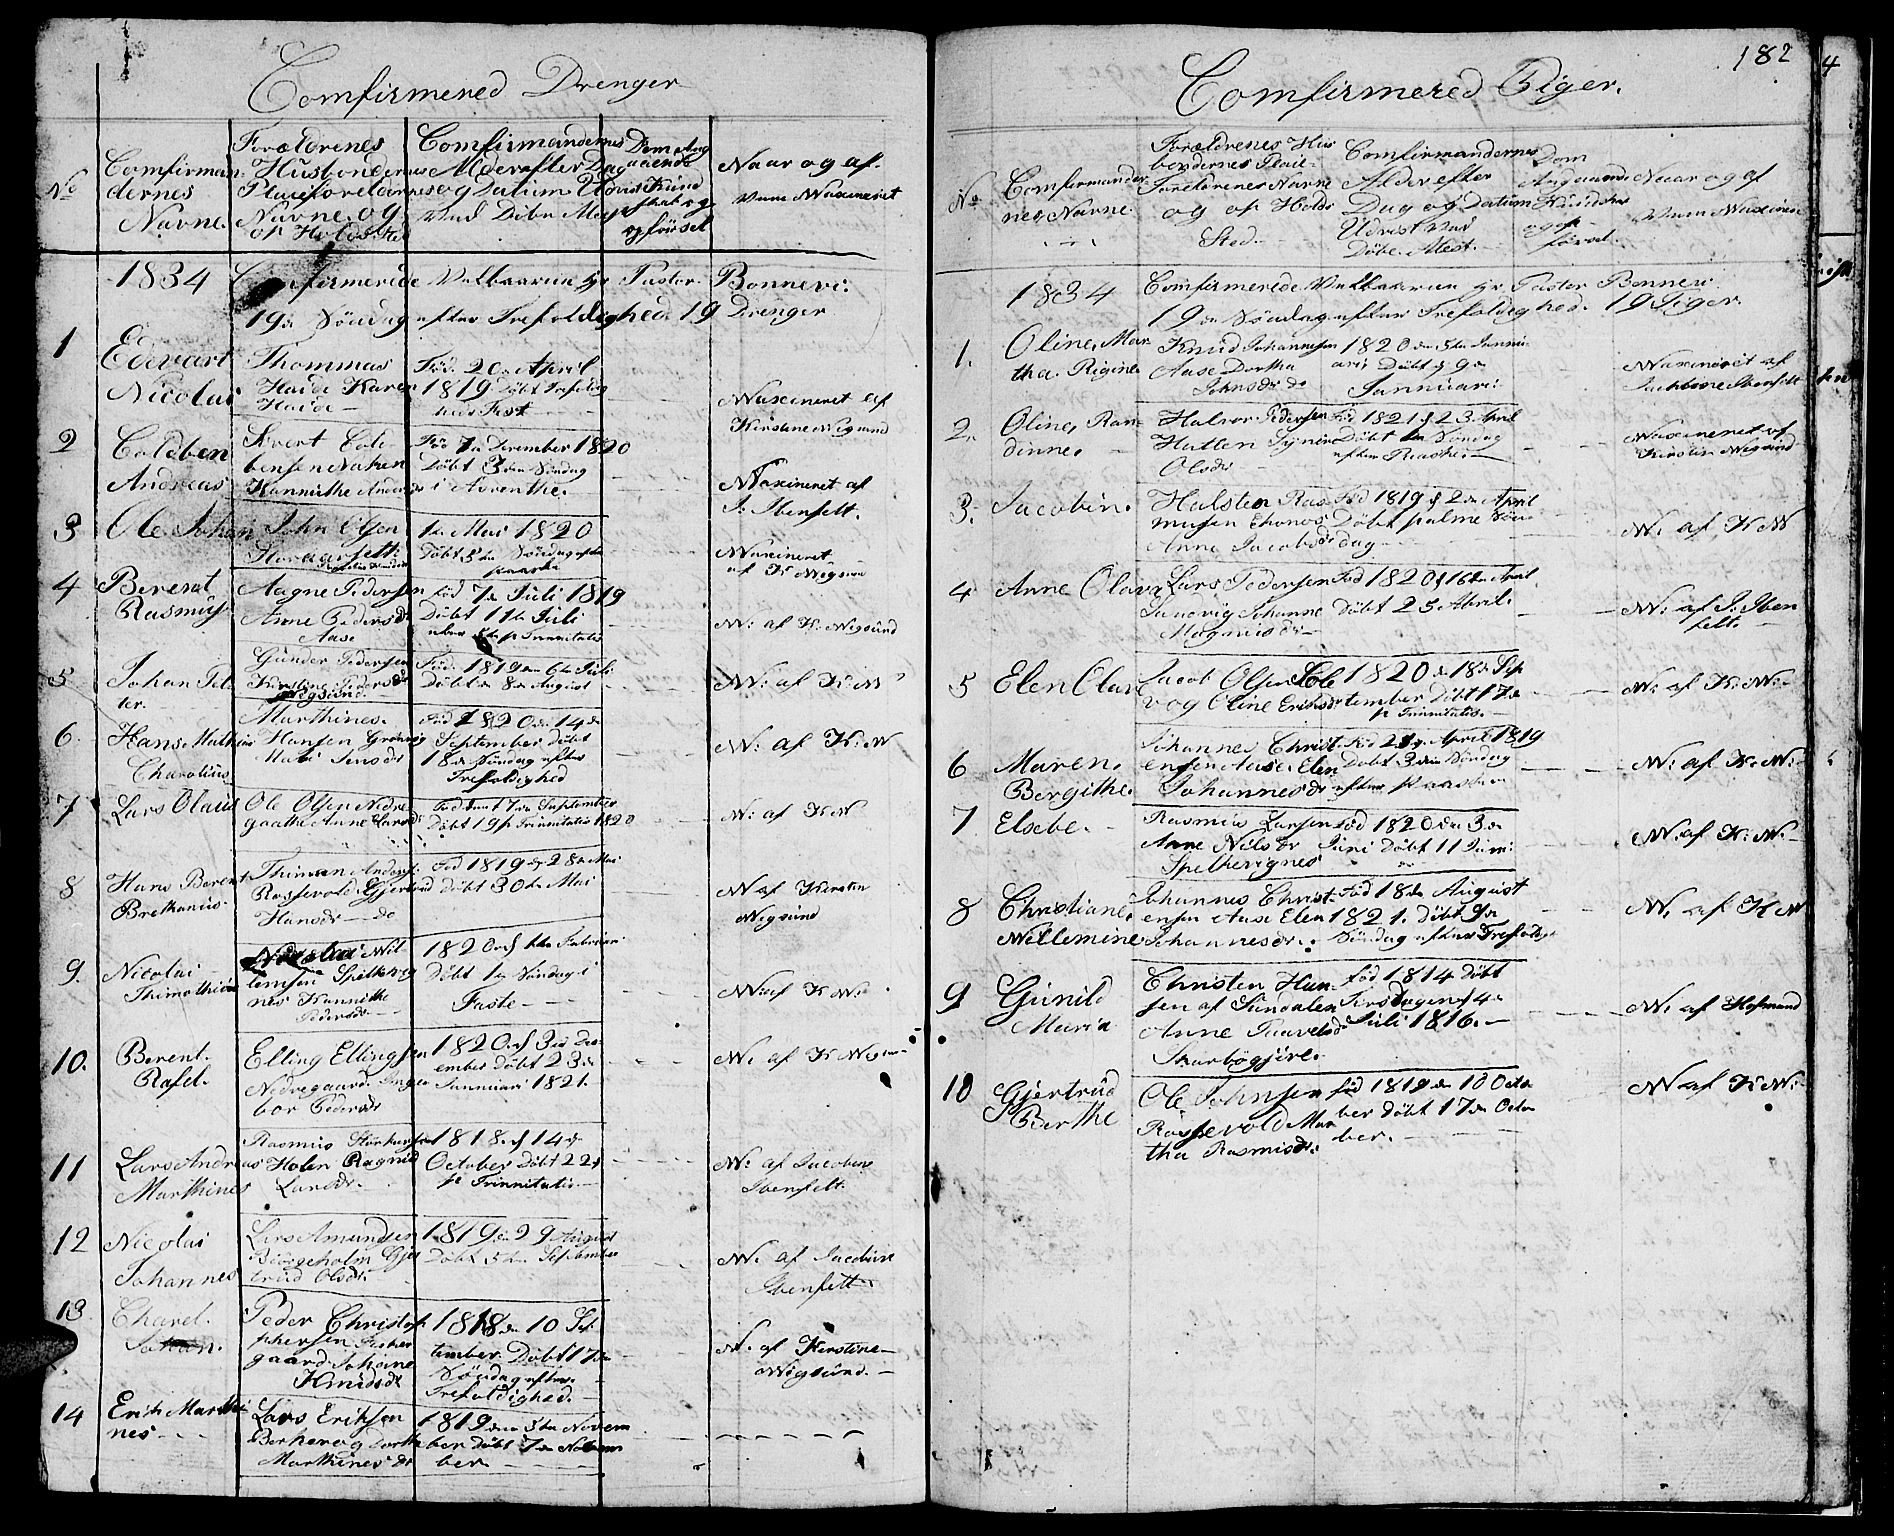 Comfirmered Drenger
No
Comfirman-
dernes
Navne.
Forældrenes
Husbondernes
Navne og
op Holds Sted
Comfirmandernes
Alder efter Dag
og Datum Udvist
ved Döbe
Dom Ang
aaende
Kund
skab og
opförsel
Naar og af
Vaxineret
1834 Comfirmerede Pastor Bonnevi:
19de Söndag efter Trefoldighed 19 Drenger
1
Edevart
Nicolai
Thommas
Haide Karen
Haide
Föd. 20de April
1819 Döbt Trefoldig
heds Fest
Waxineret af
Kirstine Wigsund
2
Coldben
Andreas
Sivert Col-
bensen
Kannuthe Anders
Föd 7de December 1820
Döbt 3die Söndag
i Adventhe.
Waxineret af
J: Ibenfelt.
3
Ole Johan
John Olsen
1te Mai 1820
Döbt 5te Söndag efter
paaske
Waxineret
af K Wigsund
4
Berent
Rasmus
Aagne Pedersen
Anne Pedersdr
Aase
föd 7de Juli 1819
Döbt 11te Juli
p Trinnitatis
W: af K: Wigsund
5
Johan Pet-
ter.
Gunder Pedersen
Kirstine Pedersdr
Wigsund
Föd. 1819 den 6te Juli
Döbt 8de August
W: af K: W
6.
Hans Mathias
Charolius
Marthines
Hansen
Jensdr
Föd 1820 den 14de
September döbt
18de Söndag efter
Trefoldighed
W: af K: W
7
Lars Olaus
Ole Olsen Nedre
gaathe Anne Larsdr
Föd 17de September
Döbt 19 p Trinnitatis 1820
W: af K W
8
Hans Berent
Brethanius
Thiman Anders:
Rossevold Gjertrud
Hansdr do
Föd 1819 d 28de Mai
Döbt 30te Mai
W af Kirsten
Wigsund
9.
Nicolai
Thimothius
Nicolai Wil
lemsen Spilkevig
nes Kannithe
Pedersdr
1820 d 1te Februari
Döbt 1te Söndag i
Faste
W: af K W:
10.
Berent
Rafel.
Elling Ellingsen
Nedregaard Inge
bor Pedersdr
1820 d 3die Dec
ember döbt 23de
Jannuari 1821.
W. af K Wigsun
11
Lars Andreas
Marthines
Rasmus
Holen Ragnild
Larsdr.
1818 d 14de
October döbt 22
p Trinnitatis
W: af Jacobine
Ibenfelt.
12
Nicolai
Johannes
Lars Amundsen
Björgeholm Gjer
trud Olsdr.
1819 29 August
Döbt 5te September
W. af Jacobine
Ibenfelt
13
Charel
Johan.
Peder Christof
phersen Fisker
gaard Johane
Knudsdr
1818 den 10 Sep
tember Döbt 17de
Söndag efter
Trefoldighed.
W. af Kirstine
Wigsund.
14
Erik Marthi
nes
Lars Eriksen
Berkevog Dorthe
Marthines dr
1819 den 5te Novem
ber döbt 7de Novem
ber
182
Comfirmered Piger.
No
Comfirmander
nes Navne
Forældrenes Hus
bondernes
Forældrenes Navne
og op Holds
Sted
Comfirmandernes
Alder efter
Dag og Datum
Udvist ved
Döbe Atest.
Dom
Angaaende
Kundskab
og op
försel.
Naar og af
Vaxineret
1834 Comfirmerede Pastor Bonnevi
19de Söndag efter Trefoldighed. 19 Piger
1.
Oline Mar
tha Rigine
Knud Johannesen
Aase Dortha
Johnsdr do
1820 den 5te Jannu
ari Döbt d 9de
Jannuari
Waxineret af
Jachobine Ibenfelt
2.
Oline Ran
dinne
Halvor Pedersen
Hatlen
Olsdr
Föd 1821 d 23 April
Döbt Söndag
efter Paaske
Waxineret af
Kirstin Wigsund
3.
Jacobine.
Hulsten Ras
musen
Anne Jacobsdr
Föd 1819 d 2de April
Döbt palme Sön
dag
W. af K W
4
Anne Olava
Lars Pedersen
Johanne
Magnusdr
Föd 1820 d 16de April
Döbt 25 April.
W: af J: Iben
felt.
5
Elen Olava
Jacob Olsen Sole
vog Oline Eriksdr
1820 d 18de Sep
tember Döbt 17de
p Trinnitatis
W. af K: W:
6
Maren
Bergithe
Johannes Christ
ensen Aase Elen
Johannesdr
Föd 21 April 1819
Döbt 3die Söndag
efter paaske
W: af K: W:
7
Elsebe.
Rasmus Larsen
Anne Nilsdr
Spelkevignes
Föd 1820 den 3de
Juni Döbt 11 Juni
W. af K: W:
8
Christiane
Willemine
Johannes Christ-
ensen Aase Elen
Johannesdr.
Föd 18de August
1821. Döbt 9de
Söndag efter Trefoldig
W. af K W
9
Gunild
Maria
Christen Han-
sen af Sundalen
Anne Paavelsdr
Skarbögjöre
föd 1814 döbt
Torsdagen d 4de
Juli 1816.
W: af Hofmand
10
Gjertrud
Berthe
Ole Johnsen
Rossevold Mar
tha Rasmusdr.
föd 1819 den 10 Octo
ber döbt 17de Octo
ber.
W af K W:
4